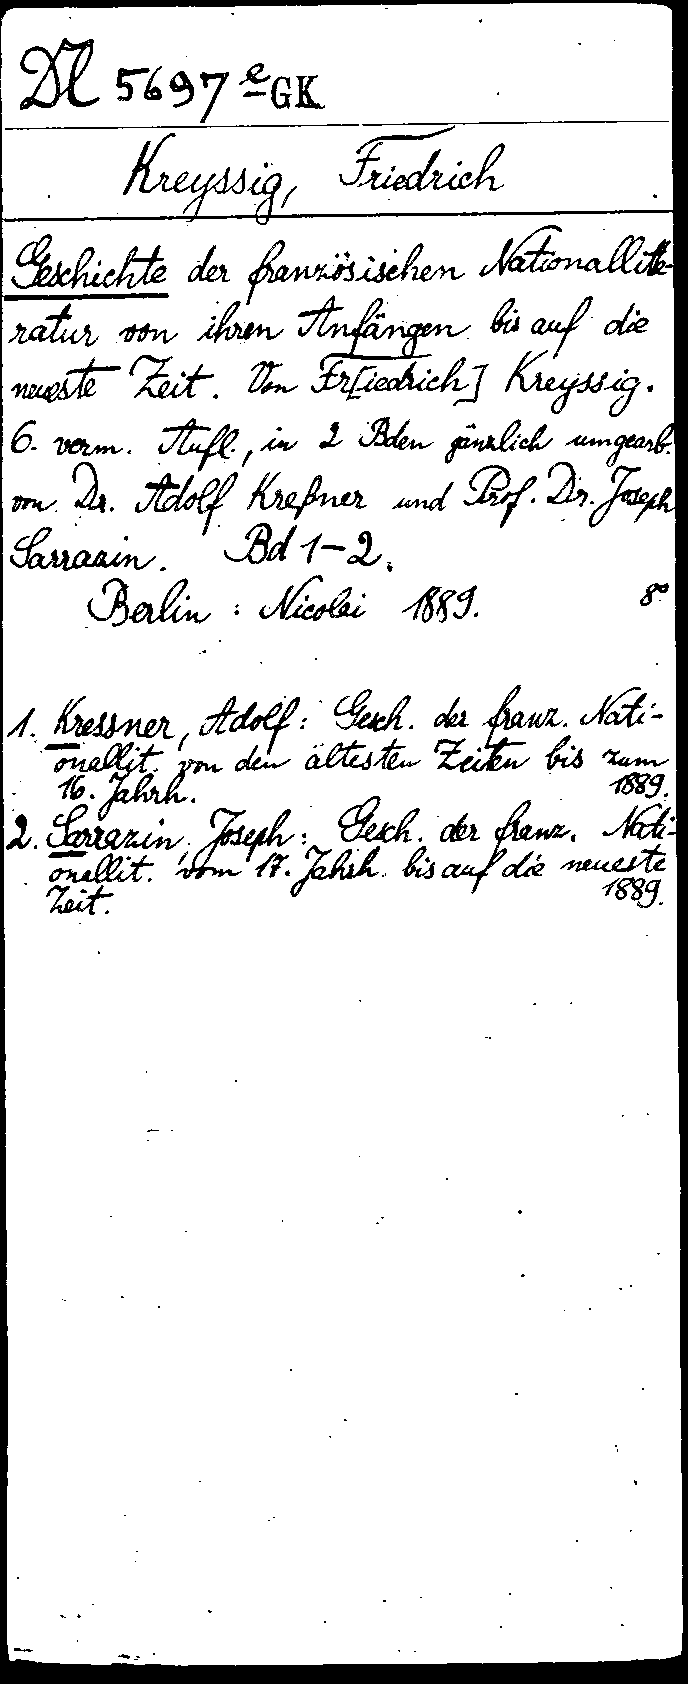 Dl 5697 e GK
Kreyssig, Friedrich
Geschichte der französischen Nationallitte-
ratur von ihren Anfängen bis auf die
neueste Zeit. Von Fr[iedrich] Kreyssig.
6. verm. Aufl., in 2 Bden gänzlich umgearb.
von Dr. Adolf Kreßner und Prof. Dr. Joseph
Sarrazin. Bd 1-2.
Berlin: Nicolai 1889. 8°
1. Kressner, Adolf: Gesch. der franz. Nati-
onallit. von den ältesten Zeiten bis zum
16. Jahrh. 1889.
2. Sarrazin, Joseph: Gesch. der franz. Nati-
onallit. vom 17. Jahrh. bis auf die neueste
Zeit. 1889.